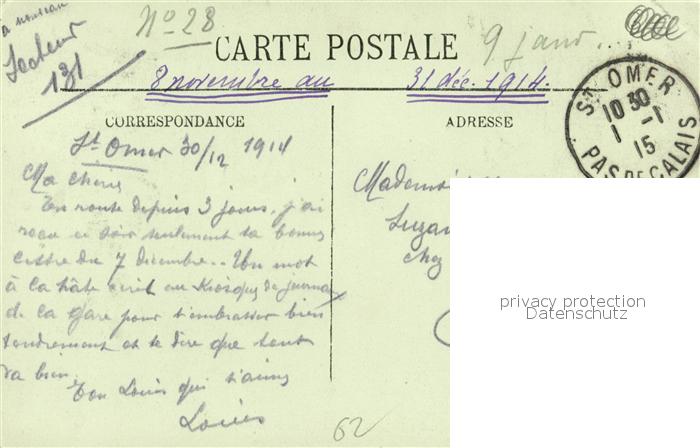 à nouveau
Secteur
131
No 28
9 janv...
CARTE POSTALE
8 novembre au 31 déc. 1914.
CORRESPONDANCE
ADRESSE
St OMER
10 30
1 - 1
15
PAS DE CALAIS
St Omer 30/12 1914
Ma chérie
En route depuis 3 jours, j'ai
reçu ce soir seulement ta bonne
lettre du 7 décembre.. Un mot
à la hâte écrit au Kiosque de journaux
de la gare pour t'embrasser bien
tendrement et te dire que tout
va bien.
Ton Louis qui t'aime
Louis
Mademoi
Suzan
chez
62
privacy protection
Datenschutz